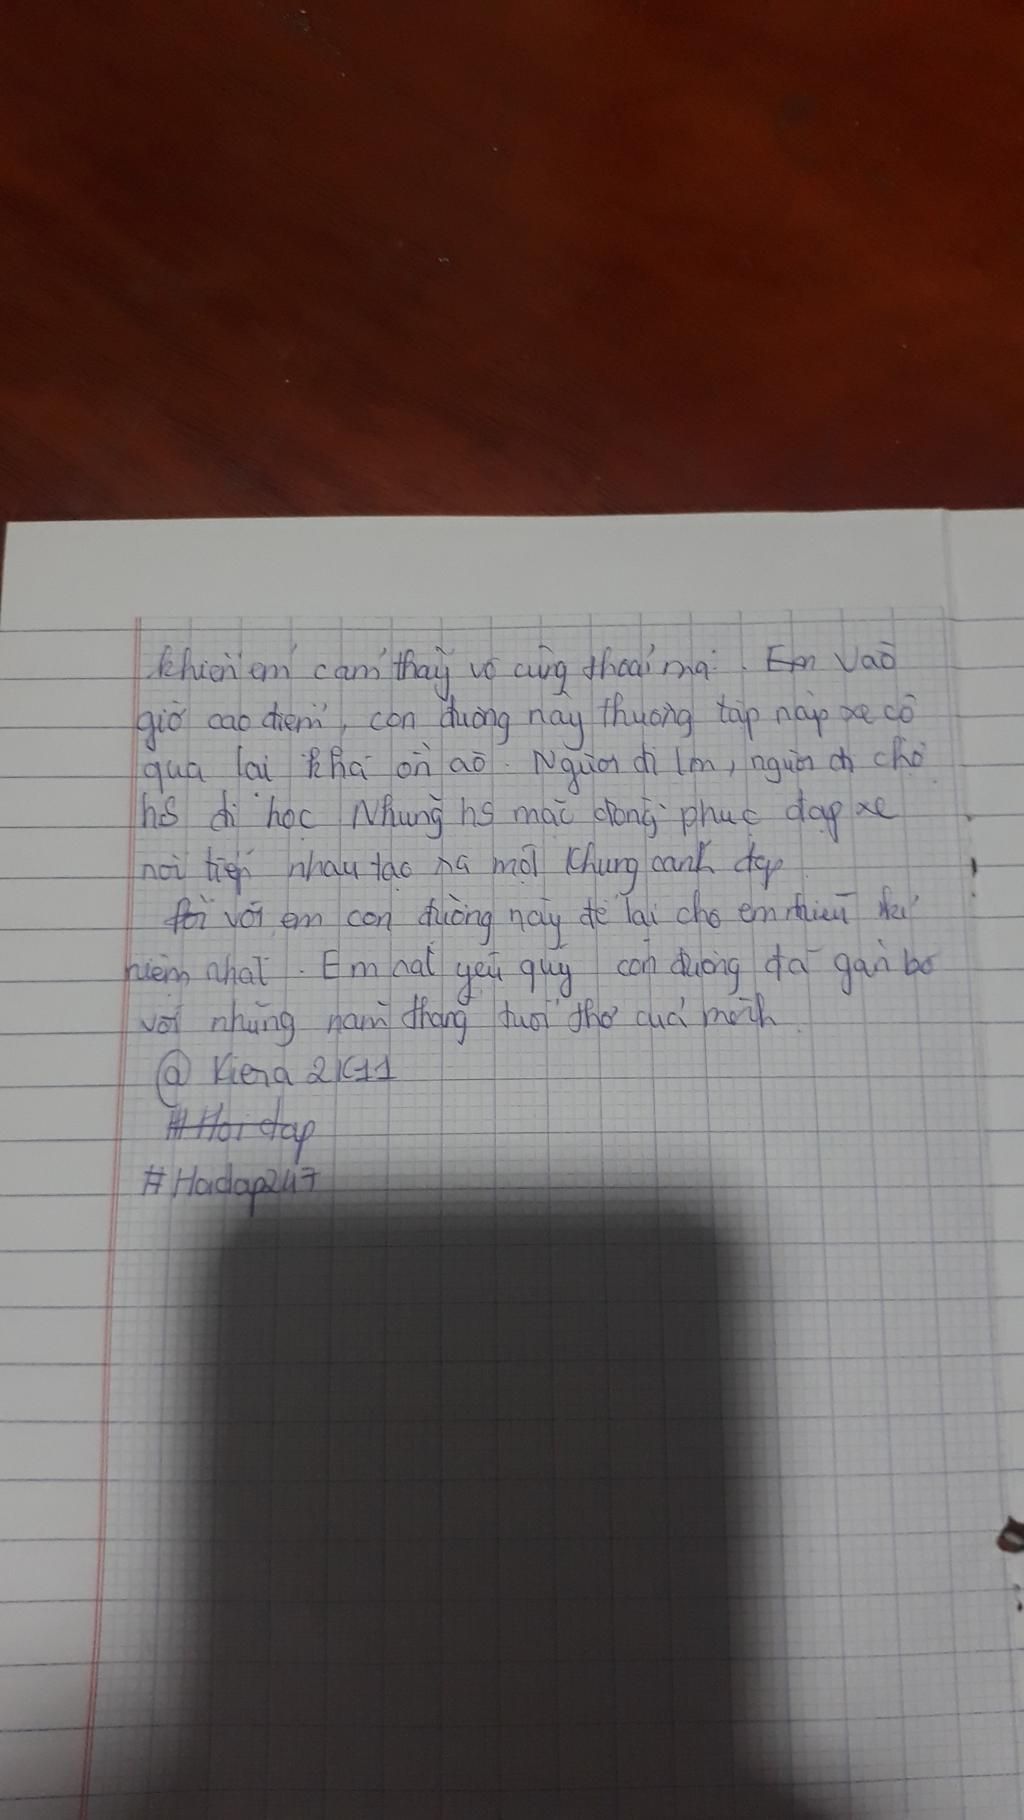 khiến em cảm thấy vô cùng thoải mái. Em Vào
giờ cao điểm, con đường này thường tấp nập xe cộ
qua lại khá ồn ào. Người đi lm, người đi chợ
hS đi học Những hs mặc đồng phục đạp xe
nối tiếp nhau tạo ra một khung cảnh đẹp
Đối với em con đường này để lại cho em nhiều kỉ
niệm nhất. Em rất yêu quý con đường đã gắn bó
với những năm tháng tuổi thơ của mình
@ Kiera 2K11
# Hoi dap
#Hoidap247